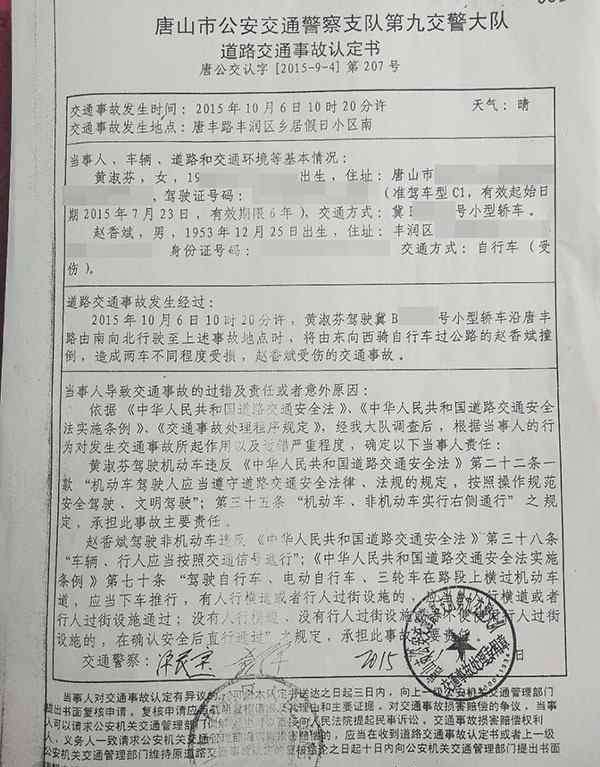 唐山市公安交通警察支队第九交警大队
道路交通事故认定书
唐公交认字 [2015-9-4] 第 207 号
交通事故发生时间：2015 年 10 月 6 日 10 时 20 分许 天气：晴
交通事故发生地点：唐丰路丰润区乡居假日小区南
当事人、车辆、道路和交通环境等基本情况：
黄淑芬，女，19 出生，住址：唐山市
，驾驶证号码： （准驾车型 C1，有效起始日
期 2015 年 7 月 23 日，有效期限 6 年），交通方式：冀 B 号小型轿车。
赵香斌，男，1953 年 12 月 25 日出生，住址：丰润区
身份证号码： 交通方式：自行车（受
伤）。
道路交通事故发生经过：
2015 年 10 月 6 日 10 时 20 分许，黄淑芬驾驶冀 B 号小型轿车沿唐丰
路由南向北行驶至上述事故地点时，将由东向西骑自行车过公路的赵香斌撞
倒，造成两车不同程度受损，赵香斌受伤的交通事故。
当事人导致交通事故的过错及责任或者意外原因：
依据《中华人民共和国道路交通安全法》、《中华人民共和国道路交通安全
法实施条例》、《交通事故处理程序规定》，经我大队调查后，根据当事人的行
为对发生交通事故所起作用以及过错严重程度，确定以下当事人责任：
黄淑芬驾驶机动车违反《中华人民共和国道路交通安全法》第二十二条一
款“机动车驾驶人应当遵守道路交通安全法律、法规的规定，按照操作规范
安全驾驶、文明驾驶”；第三十五条“机动车、非机动车实行右侧通行”之规
定，承担此事故主要责任。
赵香斌驾驶非机动车违反《中华人民共和国道路交通安全法》第三十八条
“车辆、行人应当按照交通信号通行”；《中华人民共和国道路交通安全法实施
条例》第七十条“驾驶自行车、电动自行车、三轮车在路段上横过机动车
道，应当下车推行，有人行横道或者行人过街设施的，应当从人行横道或者
行人过街设施通过；没有人行横道、没有行人过街设施或者不便使用行人过街
设施的，在确认安全后直行通过”之规定，承担此事故次要责任。
交通警察： 2015 日
当事人对交通事故认定有异议的，可自本认定书送达之日起三日内，向上一级公安机关交通管理部门
提出书面复核申请，复核申请应当载明复核请求及其理由和主要证据。对交通事故损害赔偿的争议，当事
人可以请求公安机关交通管理部门调解，也可以直接向人民法院提起民事诉讼，交通事故损害赔偿权利
人、义务人一致请求公安机关交通管理部门调解损害赔偿的，应当在收到道路交通事故认定书或者上一级
公安机关交通管理部门维持原道路交通事故认定的复核结论之日起十日内向公安机关交通管理部门提出书面